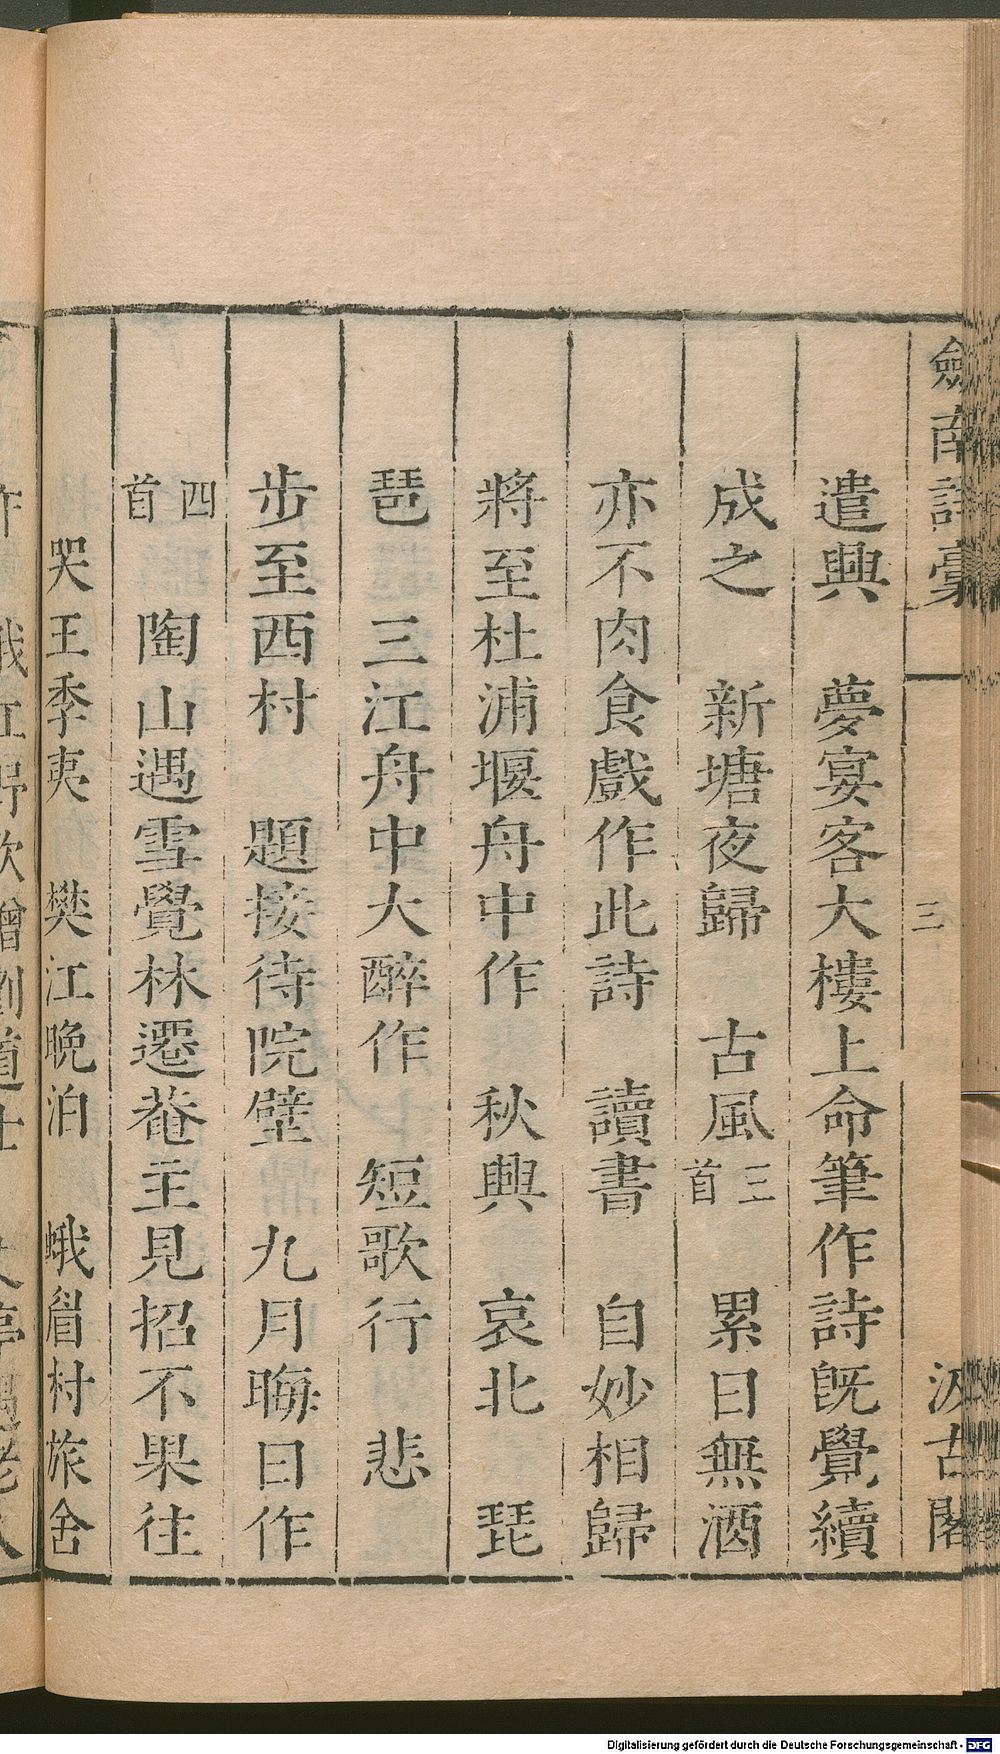 劍南詩稾 三 汲古閣
遣興 夢宴客大樓上命筆作詩旣覺續
成之 新塘夜歸 古風三首 累日無酒
亦不肉食戲作此詩 讀書 自妙相歸
將至杜浦堰舟中作 秋興 哀北 琵
琶 三江舟中大醉作 短歌行 悲
步至西村 題接待院壁 九月晦日作
四首 陶山遇雪覺林遷菴主見招不果往
哭王季夷 樊江晚泊 峨眉村旅舍
Digitalisierung gefördert durch die Deutsche Forschungsgemeinschaft - DFG